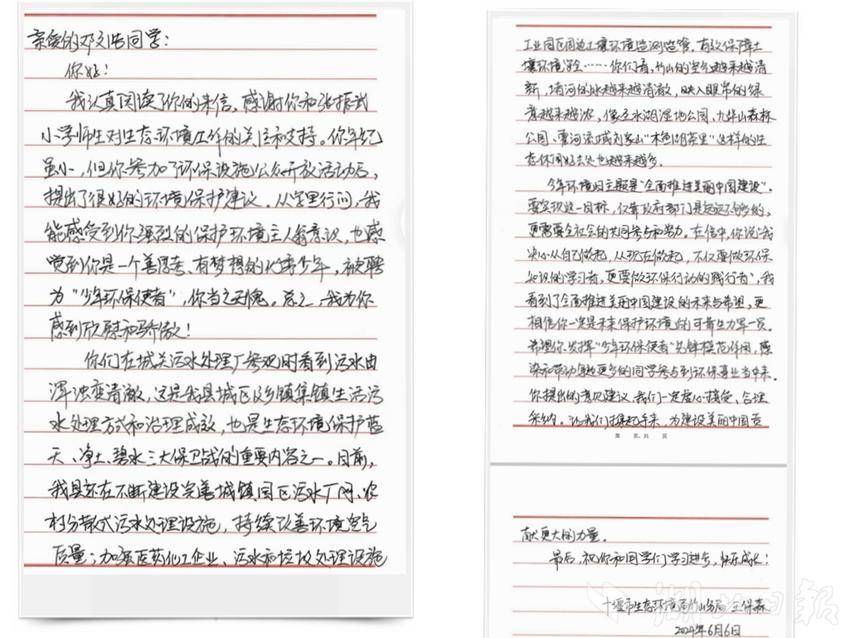 亲爱的邓刘浩同学：
你好！
我认真阅读了你的来信，感谢你和张振武
小学师生对生态环境工作的关注和支持。你年纪
虽小，但你参加了环保设施公众开放活动后，
提出了很好的环境保护建议，从字里行间，我
能感受到你强烈的保护环境主人翁意识，也感
觉到你是一个善思考、有梦想的少年，被聘
为“少年环保使者”，你当之无愧。总之，我为你
感到欣慰和骄傲！
你们在城关污水处理厂参观时看到污水由
浑浊变清澈，这是我县城区及乡镇集镇生活污
水处理方式和治理成效，也是生态环境保护蓝
天、净土、碧水三大保卫战的重要内容之一。目前，
我县还在不断建设完善城镇园区污水厂网、农
村分散式污水处理设施，持续改善环境空气
质量；加强医药化工企业、污水和垃圾处理设施
工业园区周边土壤环境监测监管，有效保障土
壤环境安全……你们看，竹山的空气越来越清
新，堵河的水越来越清澈，映入眼帘的绿
意越来越浓，像圣水湖湿地公园、九华山森林
公园、霍河流域刘家山“本色
态休闲好去处也越来越多。
今年环境日主题是“全面推进美丽中国建设”，
要实现这一目标，仅靠政府部门是远远不够的，
更需要全社会的共同参与和努力。在信中，你说：“我
决心从自己做起，从现在做起，不仅要做环保
知识的学习者，更要做环保行动的践行者”，我
看到了全面推进美丽中国建设的未来与希望，更
相信你一定是未来保护环境的可靠生力军一员。
希望你发挥“少年环保使者”先锋模范作用，感
染和带动身边更多的同学参与到环保事业当中来。
你提出的意见建议，我们一定虚心接受，合理
采纳。让我们携起手来，为建设美丽中国贡
第 页，共 页
献更大的力量。
最后，祝你和同学们学习进步，快乐成长！
十堰市生态环境局竹山分局 王保森
2024年6月6日
湖北日报